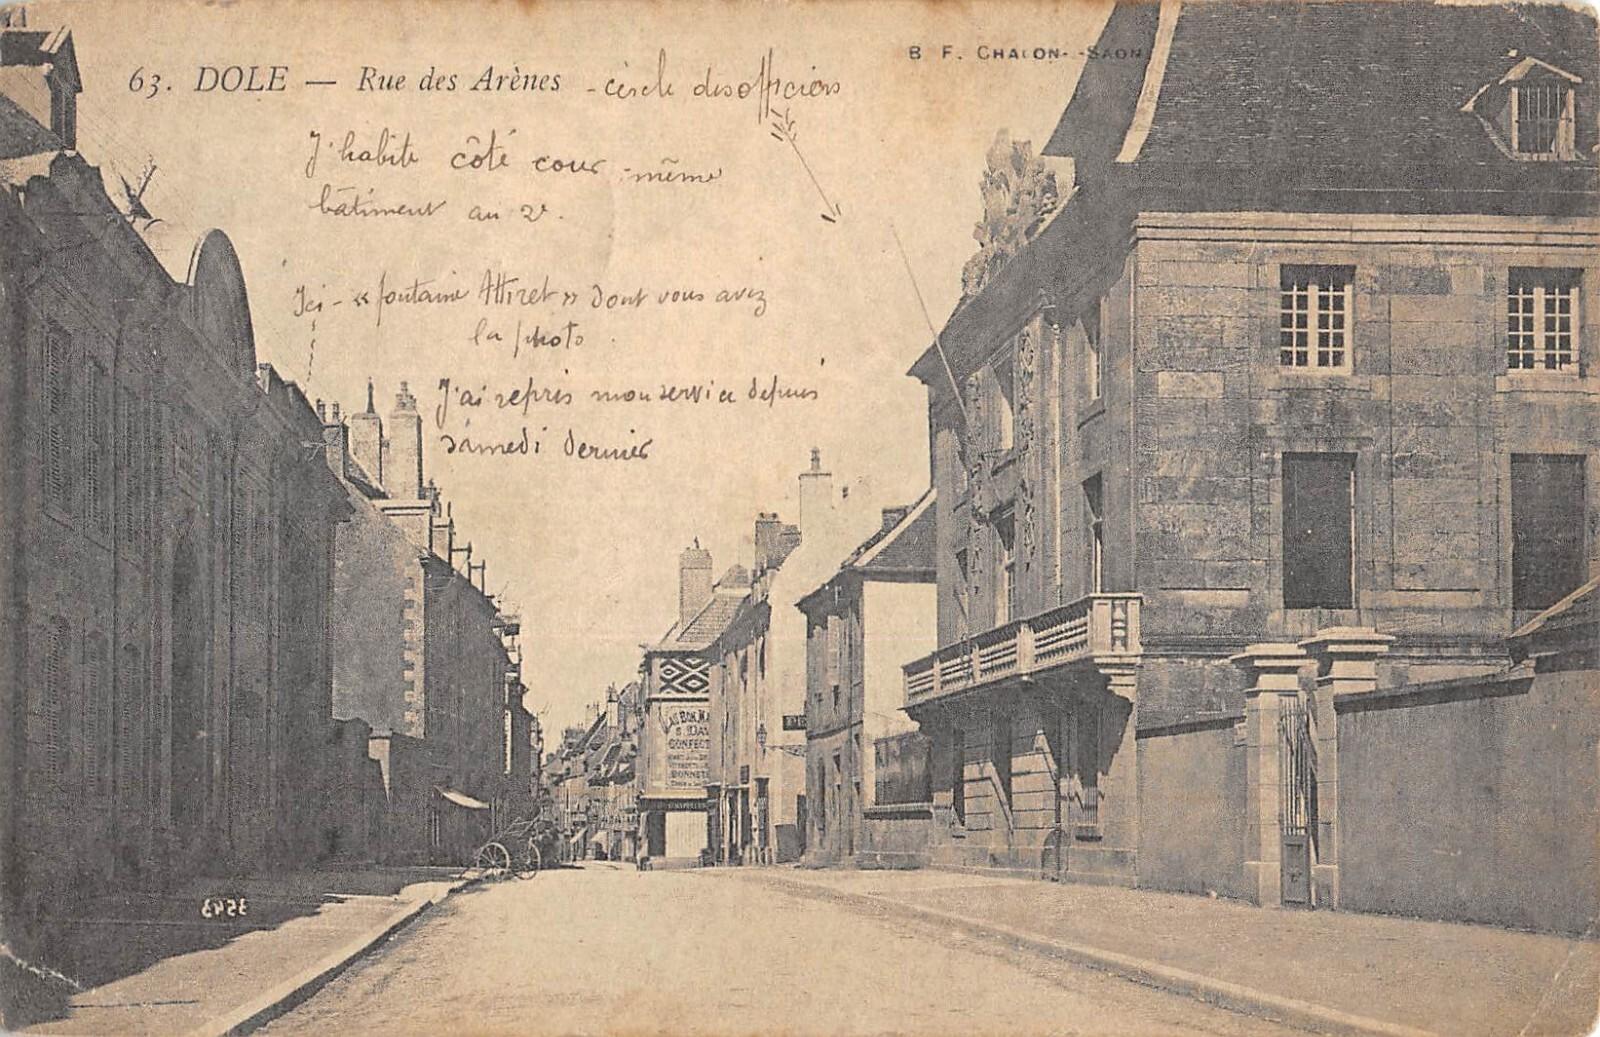 B. F. CHALON- -SAON
63. DOLE — Rue des Arènes - cércle des officiers
J'habite côté cour - même
bâtiment au 2e.
Ici - « fontaine Attiret » dont vous avez
la photo.
J'ai repris mon service depuis
samedi dernier
AU BON MA
CONFECT
BONNET
3543